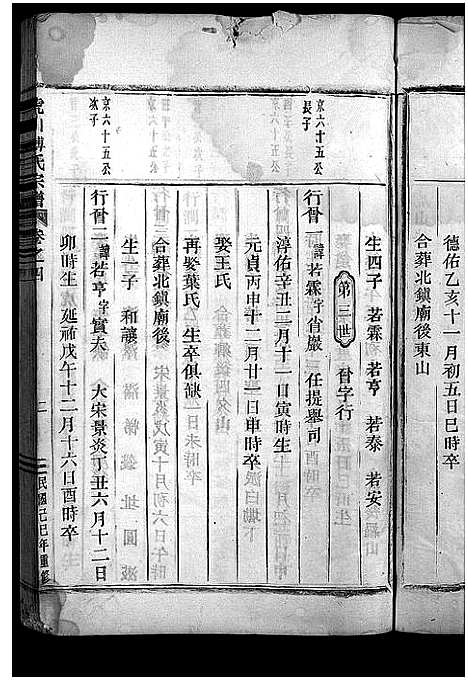 德佑乙亥十一月初五日巳時卒
合葬北鎮廟後東山
生四子 若霖 若亨 若泰 若安
第三世 晉字行
京六十五公長子
行晉一諱若霖字省嚴 任提舉司
淳佑辛丑二月十一日寅時生
元貞丙申十二月廿二日申時卒
娶王氏
再娶葉氏 生卒俱缺
合葬北鎮廟後
生一子 和讓
京六十五公次子
行晉二諱若亨字實夫 大宋景炎丁丑六月十二日
卯時生 延祐戊午十二月十六日酉時卒
氏宗譜 卷之四 三 民國己巳年重修